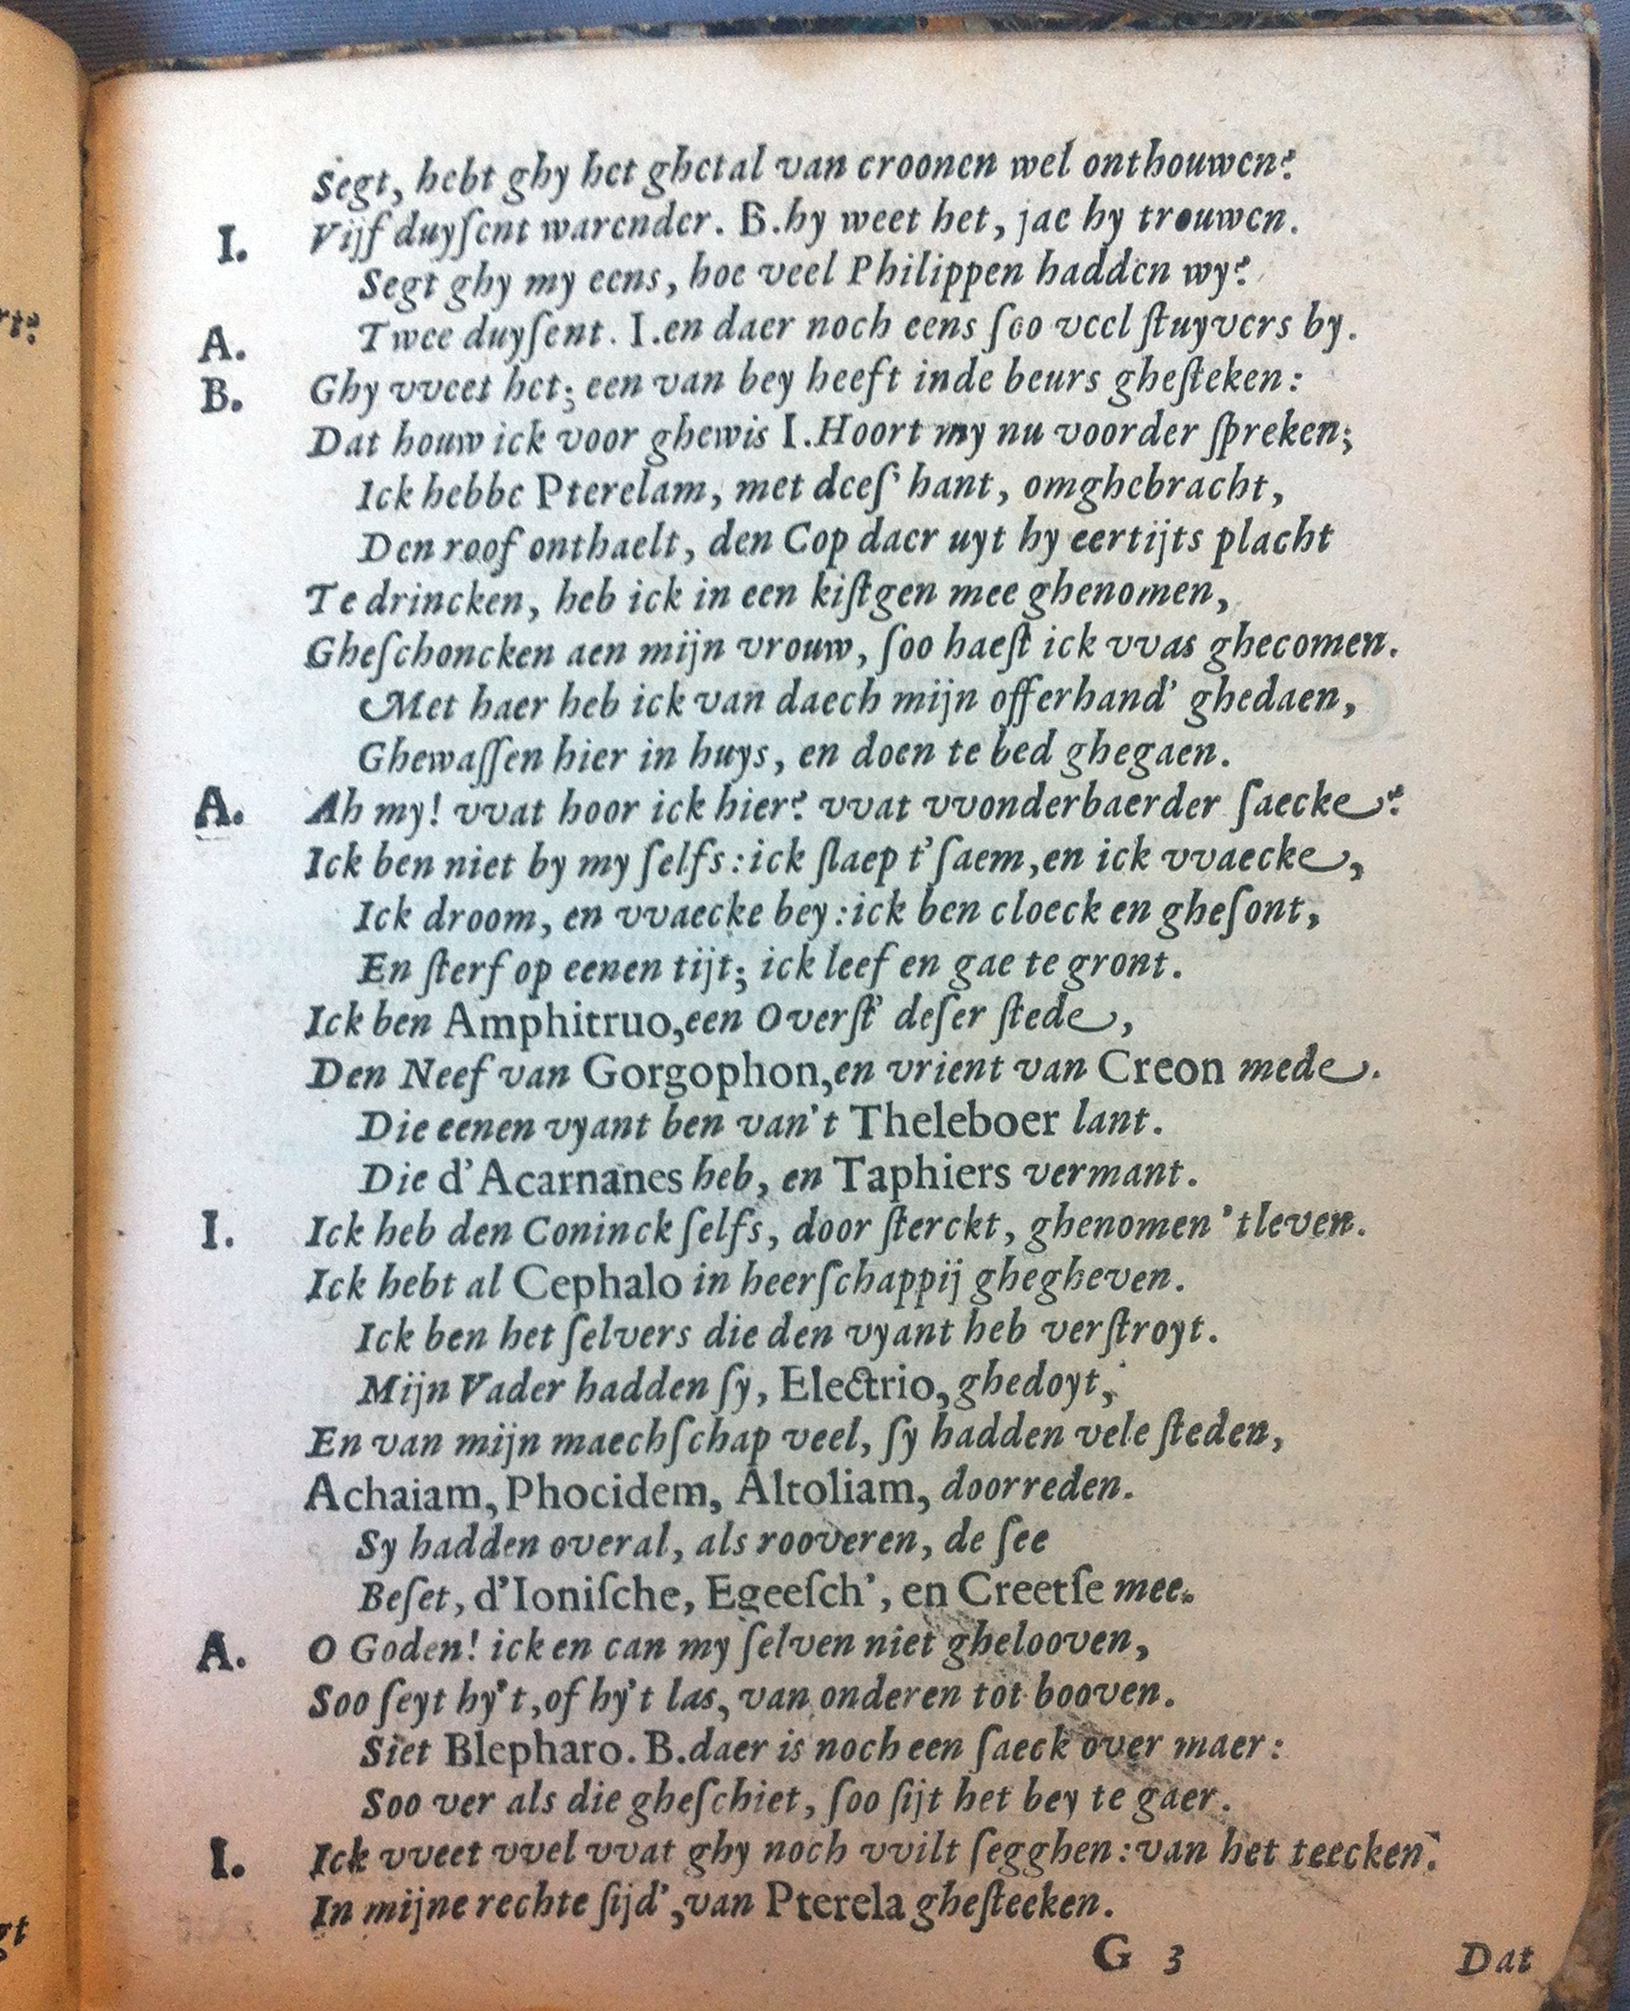 Segt, hebt ghy het ghetal van croonen wel onthouwen?
I. Vijf duyſent warender. B. hy weet het, jae hy trouwen.
Segt ghy my eens, hoe veel Philippen hadden wy?
A. Twee duyſent. I. en daer noch eens ſoo veel ſtuyvers by.
B. Ghy vveet het; een van bey heeft inde beurs gheſteken:
Dat houw ick voor ghewis I. Hoort my nu voorder ſpreken;
Ick hebbe Pterelam, met deeſ' hant, omghebracht,
Den roof onthaelt, den Cop daer uyt hy eertijts placht
Te drincken, heb ick in een kiſtgen mee ghenomen,
Gheſchoncken aen mijn vrouw, ſoo haeſt ick vvas ghecomen.
Met haer heb ick van daech mijn offerhand' ghedaen,
Ghewaſſen hier in huys, en doen te bed ghegaen.
A. Ah my! vvat hoor ick hier? vvat vvonderbaerder ſaecke?
Ick ben niet by my ſelfs: ick ſlaep t'ſaem, en ick vvaecke,
Ick droom, en vvaecke bey: ick ben cloeck en gheſont,
En ſterf op eenen tijt; ick leef en gae te gront.
Ick ben Amphitruo, een Overſt' deſer ſtede,
Den Neef van Gorgophon, en vrient van Creon mede.
Die eenen vyant ben van't Theleboer lant.
Die d'Acarnanes heb, en Taphiers vermant.
I. Ick heb den Coninck ſelfs, door ſterckt, ghenomen 't leven.
Ick hebt al Cephalo in heerſchappij ghegheven.
Ick ben het ſelvers die den vyant heb verſtroyt.
Mijn Vader hadden ſy, Electrio, ghedoyt,
En van mijn maechſchap veel, ſy hadden vele ſteden,
Achaiam, Phocidem, Altoliam, doorreden.
Sy hadden overal, als rooveren, de ſee
Beſet, d'Ioniſche, Egeeſch', en Creetſe mee.
A. O Goden! ick en can my ſelven niet ghelooven,
Soo ſeyt hy't, of hy't las, van onderen tot booven.
Siet Blepharo. B. daer is noch een ſaeck over maer:
Soo ver als die gheſchiet, ſoo ſijt het bey te gaer.
I. Ick vveet vvel vvat ghy noch vvilt ſegghen: van het teecken.
In mijne rechte ſijd', van Pterela gheſteeken.
G 3 Dat